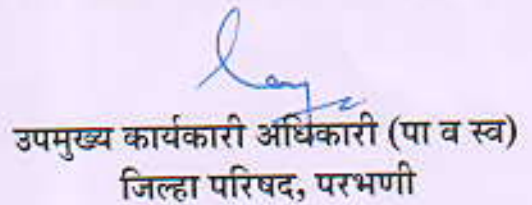 उपमुख्य कार्यकारी अधिकारी (पा व स्व)
जिल्हा परिषद, परभणी